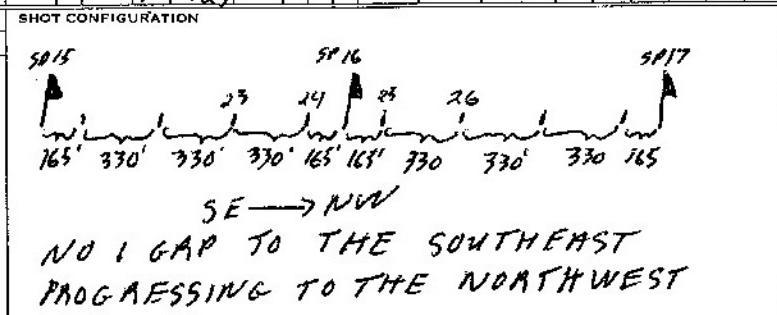 SHOT CONFIGURATION
SP 15 SP 16 SP 17
23 24 25 26
165' 330' 330' 330' 165' 165' 330 330' 330 165
SE → NW
NO 1 GAP TO THE SOUTHEAST
PROGRESSING TO THE NORTHWEST